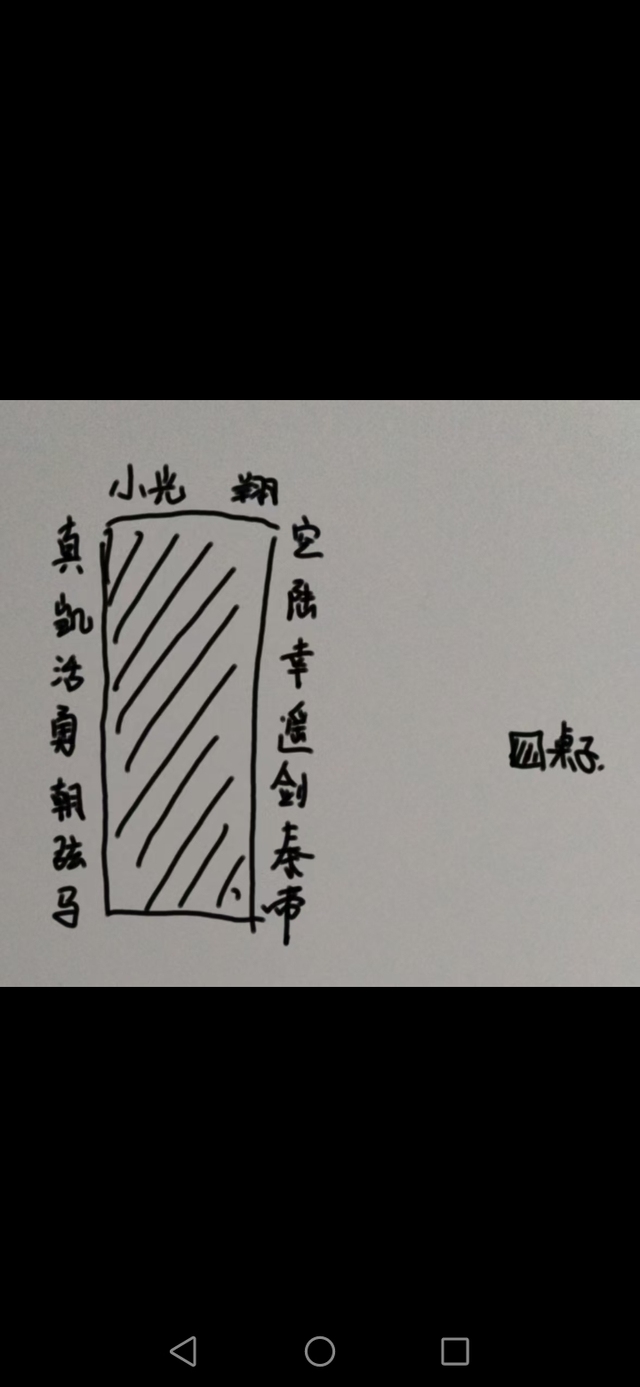 小光 翔
真
凯
活
勇
朝
弦
马
它
陆
幸
遥
剑
泰
帝
桌子.